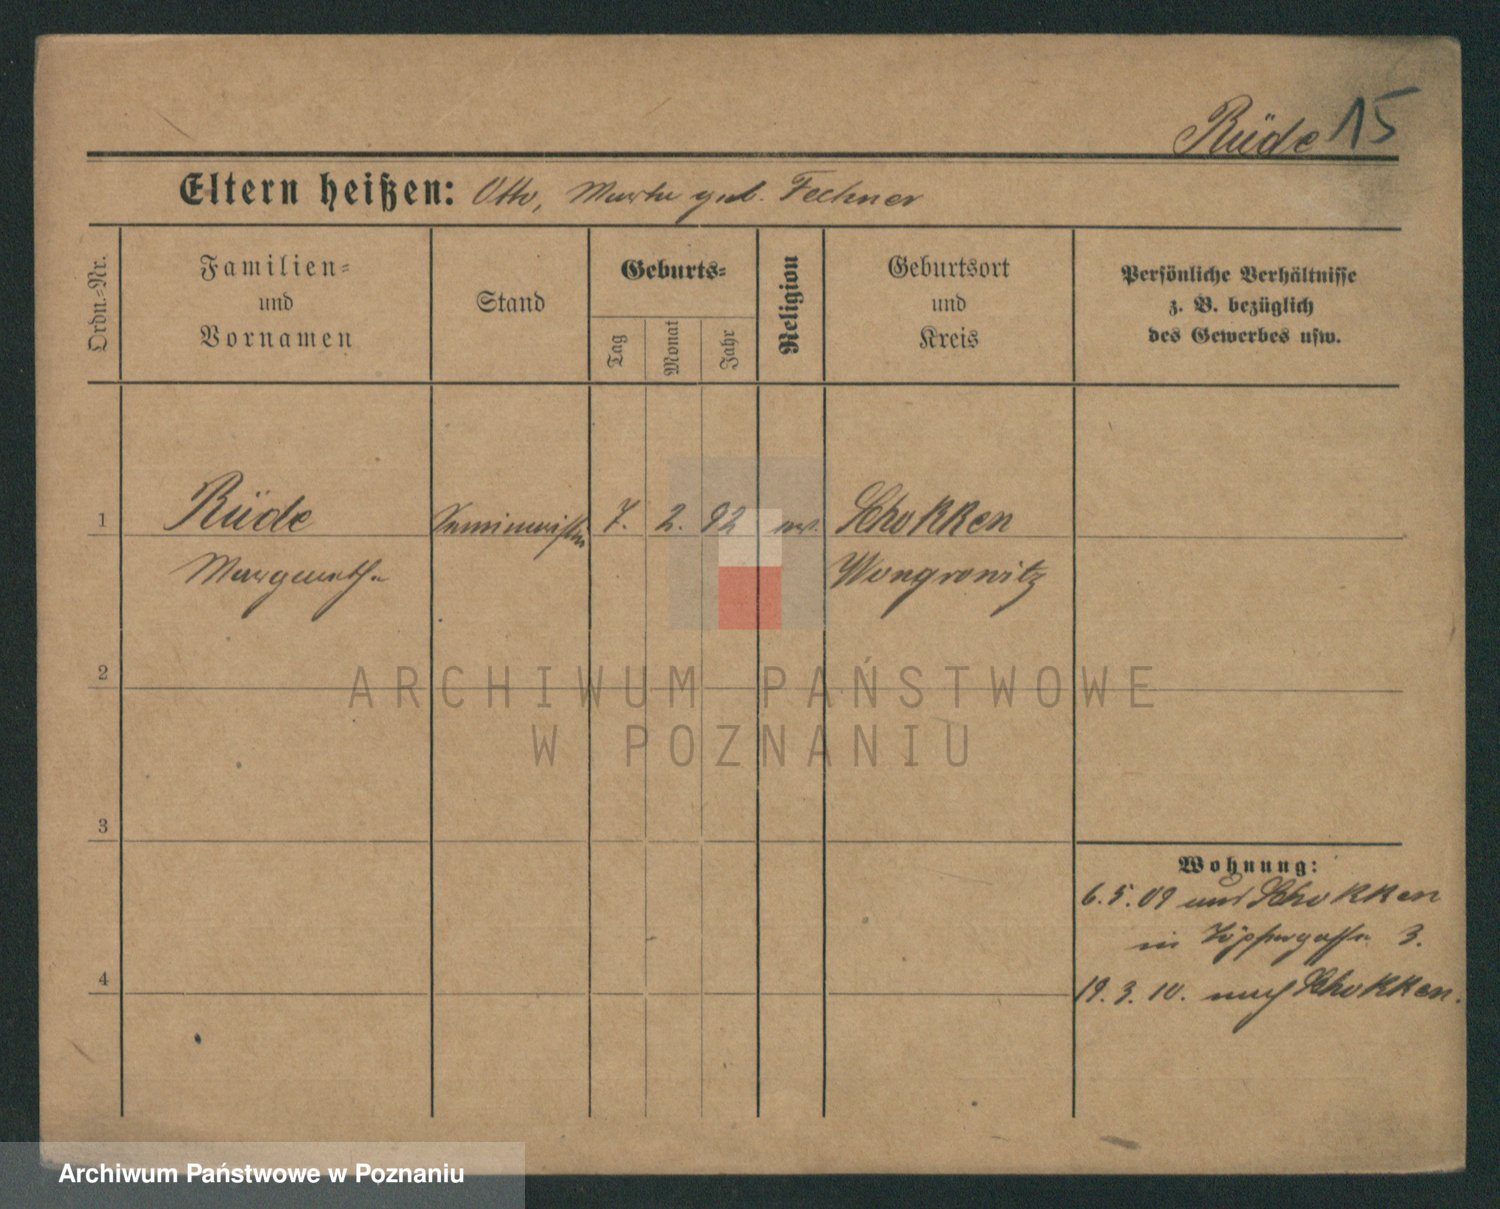 Rüde 15
Eltern heißen: Otto, Martha geb. Fechner
Ordn.-Nr.
Familien-
und
Vornamen
Stand
Geburts-
Tag
Monat
Jahr
Religion
Geburtsort
und
Kreis
Persönliche Verhältnisse
z. B. bezüglich
des Gewerbes usw.
1
Rüde
Seminaristin
7. 2. 92
ev.
Schokken
Margarethe
Wongrowitz
2
ARCHIWUM PAŃSTWOWE
W POZNANIU
3
Wohnung:
6.5.09 aus Schokken
in Töpfergasse 3.
4
19.3.10. nach Schokken.
Archiwum Państwowe w Poznaniu